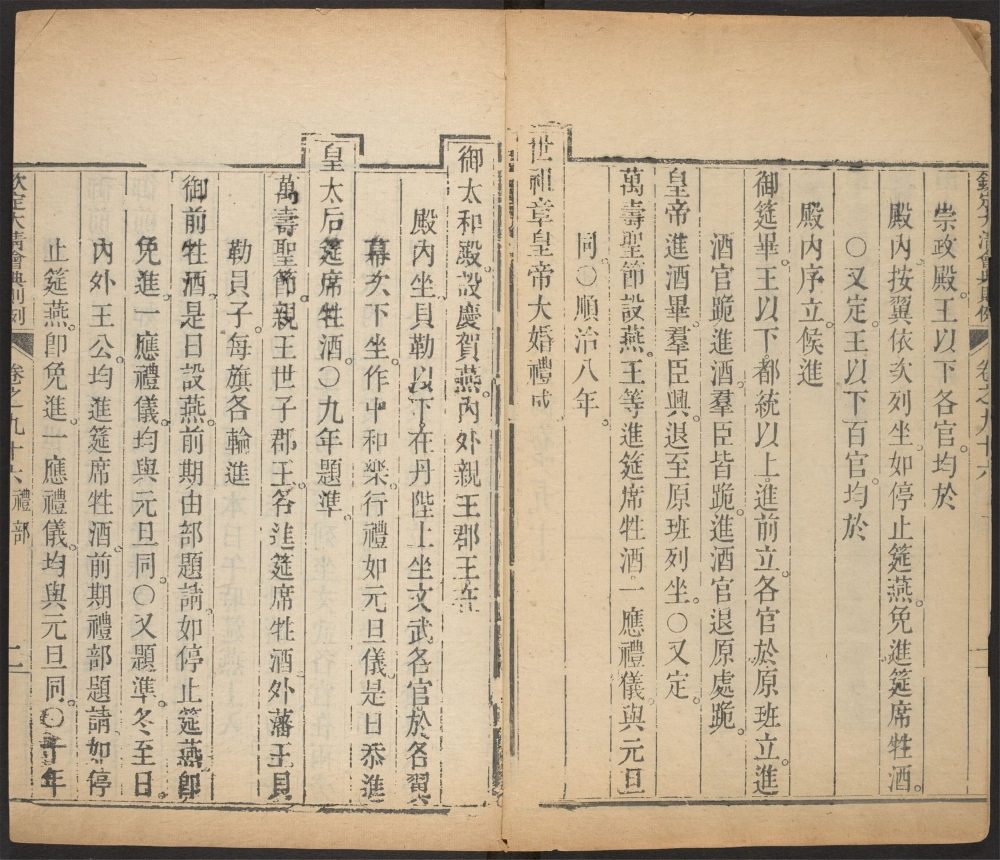 欽定大清會典則例 卷之九十六
崇政殿。王以下各官。均於
殿內。按翼依次列坐。如停止筵燕。免進筵席牲酒。
○又定。王以下百官。均於
殿內序立。候進
御筵畢。王以下。都統以上。進前立。各官於原班立。進
酒官跪進酒。羣臣皆跪。進酒官退原處跪。
皇帝進酒畢。羣臣興。退至原班列坐。○又定。
萬壽聖節設燕。王等進筵席牲酒。一應禮儀。與元旦
同。○順治八年。
世祖章皇帝大婚禮成
御太和殿。設慶賀燕。內外親王郡王在
殿內坐。貝勒以下。在丹陛上坐。文武各官。於各翼
幕次下坐。作中和樂。行禮如元旦儀。是日恭進
皇太后筵席牲酒。○九年題準。
萬壽聖節。親王世子郡王。各進筵席牲酒。外藩王貝
勒貝子。每旗各輪進
御前牲酒。是日設燕。前期由部題請。如停止筵燕。卽
免進。一應禮儀。均與元旦同。○又題準。冬至日。
內外王公。均進筵席牲酒。前期禮部題請。如停
止筵燕。卽免進。一應禮儀。均與元旦同。○十年
欽定大清會典則例 卷之九十六 禮部 二